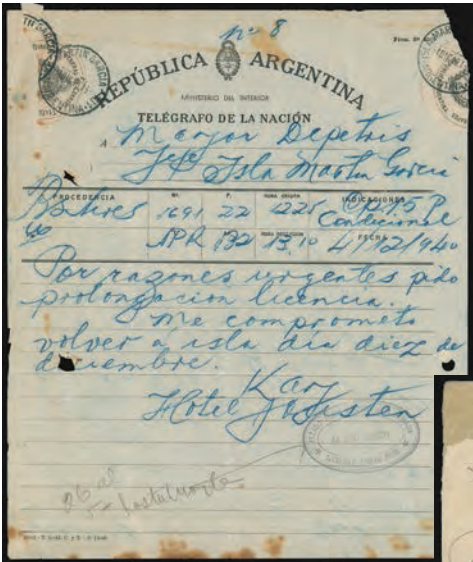 nº 8
REPÚBLICA ARGENTINA
MINISTERIO DEL INTERIOR
TELÉGRAFO DE LA NACIÓN
A Mayor Depetris
Jefe Isla Martin Garcia
PROCEDENCIA Nº. P. HORA INDICACIONES
Bs Aires 1691 22 1225
Condicional
132 13,10 FECHA 4/12/940
Por razones urgentes pido
prolongacion licencia.
Me comprometo
volver a isla dia diez de
diciembre.
Kay
Hotel Jousten